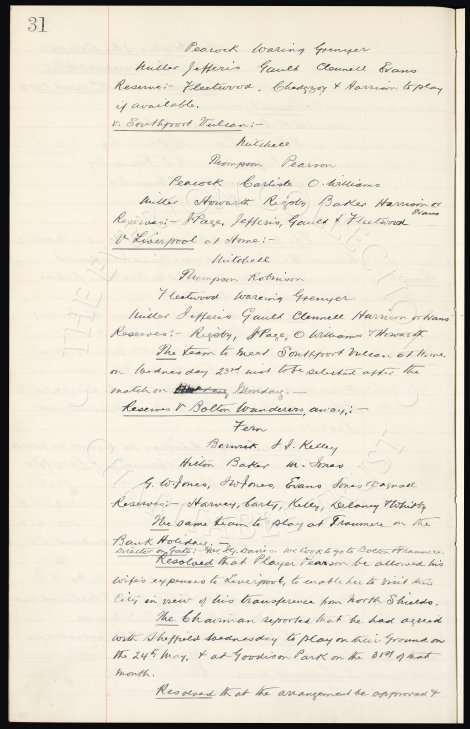 31
Peacock Waring Grenyer
Miller Jefferis Gault Clennell Evans
Reserve:- Fleetwood. Chedgzoy & Harrison to play
if available.
v. Southport Vulcan:-
Mitchell
Thompson Pearson
Peacock Carlisle O. Williams
Miller Howarth Rigsby Baker Harrison or
Evans
Reserves:- J Page, Jefferis, Gault & Fleetwood
V Liverpool at Home:-
Mitchell
Thompson Robinson
Fleetwood Wareing Grenyer
Miller Jefferis Gault Clennell Harrison or Evans
Reserves:- Rigsby, J Page, O Williams & Howarth
The team to meet Southport Vulcan at Home
on Wednesday 23rd inst to be selected after the
match on Monday:-
Reserves V Bolton Wanderers, away:-
Fern
Berwick J. J. Kelley
Hilton Baker M. Jones
G. W. Jones, Evans Jones Wagnall
Reserves:- Harvey, Carty, Kelly, Delaney & Whitby
The same team to play at Tranmere on the
Bank Holiday.-
Director or Gate:- Davies. W. C. Cook to go to Bolton & Tranmere.
Resolved that Player Pearson be allowed his
wife's expenses to Liverpool, to enable her to visit this
City in view of his transference from North Shields.
The Chairman reported that he had agreed
with Sheffield Wednesday to play on their Ground on
the 24th May, & at Goodison Park on the 31st of that
month.
Resolved that the arrangement be approved &
THE EVERTON COLLECTION